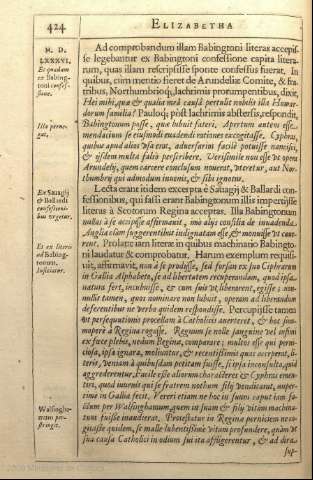 424
ELIZABETHA
M. D.
LXXXVI.
Et quædam
ex Babing-
toni confes-
sione.
Illa perne-
gat.
Ex Sauagij
& Ballardi
confessioni-
bus vrgetur.
Et ex literis
ad Babing-
tonum
Walsingha-
mum per-
stringit.
Ad comprobandum illam Babingtoni literas accepis-
se legebantur ex Babingtoni confessione capita litera-
rum, quas illam rescripsisse sponte confessus fuerat. In
quibus, cum mentio fieret de Arundeliæ Comite, & fra-
tribus, Northumbrioq́, lachrimis prorumpentibus, dixit,
Hei mihi, quæ & qualia mea causâ pertulit nobilis illa Howar-
dorum familia? Pauloq́; pòst lachrimis abstersis, respondit,
Babingtonum posse, quæ lubuit fateri. Apertum autem esse
mendacium se eiusmodi euadendi rationes excogitasse. Cyphras,
quibus apud alios vsa erat, aduersarios facilè potuisse nancisci,
& eisdem multa falsò perscribere. Verisimile non esse vt opera
Arundelij, quem carcere conclusum nouerat, vteretur, aut Nor-
thumbrij qui admodum iuuenis, & sibi ignotus.
Lecta erant itidem excerpta è Sauagij & Ballardi con-
fessionibus, qui fassi erant Babingtonum illis impertijsse
literas à Scotorum Regina acceptas. Illa Babingtonum
nullas à se accepisse affirmauit, imò alijs consilia de inuadenda
Anglia clam suggerentibus indignatam esse, & monuisse vt caue-
rent. Prolatæ iam literæ in quibus machinatio Babingto-
ni laudatur & comprobatur. Harum exemplum requisi-
uit, affirmauit, non à se prodijsse, sed forsan ex suo Ciphrarum
in Gallia Alphabeto, se ad libertatem recuperandam, quod ipsa
natura fert, incubuisse, & cum suis vt liberarent, egisse: non-
nullis tamen, quos nominare non lubuit, operam ad liberandum
deferentibus ne verbo quidem respondisse. Percupijsse tamen
vt persequutionis procellam à Catholicis auerteret, & hoc sum-
moperè à Regina rogasse. Regnum se nolle sanguine vel infimi
ex fæce plebis, nedum Reginæ, comparare: multos esse qui perni-
ciosa, ipsa ignara, moliuntur, & recentissimis quas acceperat, li-
teris, veniam à quibusdam petitam fuisse, si ipsa inconsulta, quid
aggrederentur, Facilè esse aliorum characteres & Cyphras emen-
tiri, quod iuuenis qui se fratrem nothum filij venditauit, nuper-
rimè in Gallia fecit. Vereri etiam ne hoc in suum caput iam fa-
ctum per Walsinghamum, quem in suam & filij vitam machina-
tum fuisse inaudierat. Protestatur in Reginæ perniciem nec co-
gitasse quidem, se malle lubentissimè vitam profundere, quàm vt
sua causa Catholici in odium sui ita affligerentur, & ad dira
sup-